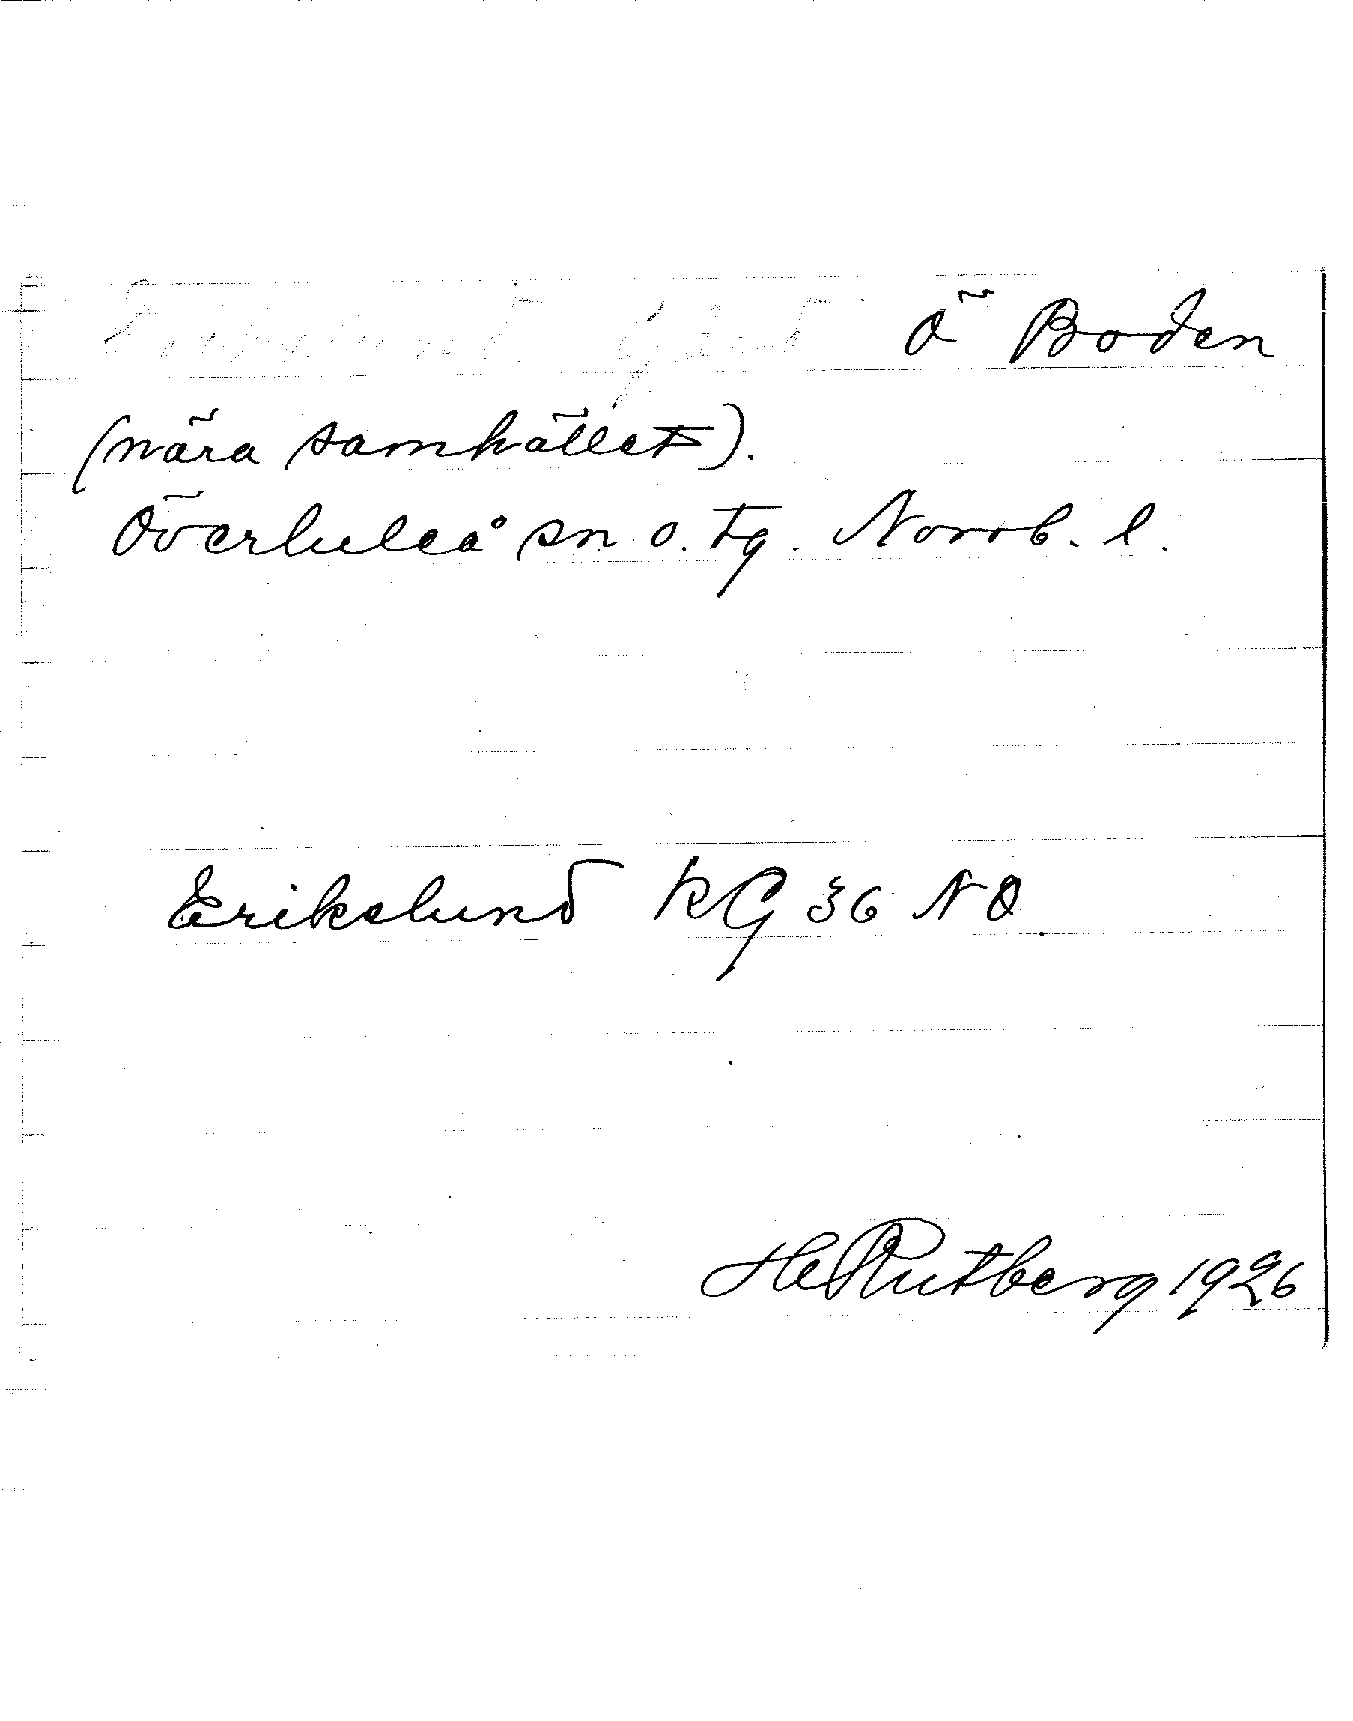 Erikslund gård Ö Boden
(nära samhället).
Överluleå sn o. tg. Norrb. l.
Erikslund KG 36 NO
H Rutberg 1926